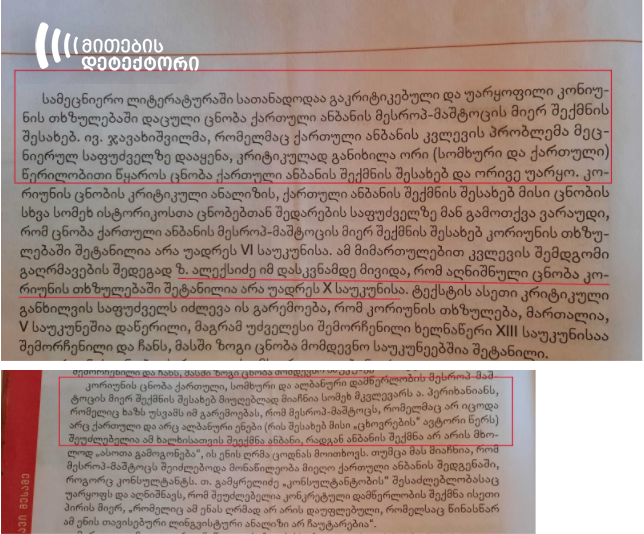 მითების
დეტექტორი
სამეცნიერო ლიტერატურაში სათანადოდაა გაკრიტიკებული და უარყოფილი კორიუ-
ნის თხზულებაში დაცული ცნობა ქართული ანბანის მესროპ-მაშტოცის მიერ შექმნის
შესახებ. ივ. ჯავახიშვილმა, რომელმაც ქართული ანბანის კვლევის პრობლემა მეც-
ნიერულ საფუძველზე დააყენა, კრიტიკულად განიხილა ორი (სომხური და ქართული)
წერილობითი წყაროს ცნობა ქართული ანბანის შექმნის შესახებ და ორივე უარყო. კო-
რიუნის ცნობის კრიტიკული ანალიზის, ქართული ანბანის შექმნის შესახებ მისი ცნობის
სხვა სომეხ ისტორიკოსთა ცნობებთან შედარების საფუძველზე მან გამოთქვა ვარაუდი,
რომ ცნობა ქართული ანბანის მესროპ-მაშტოცის მიერ შექმნის შესახებ კორიუნის თხზუ-
ლებაში შეტანილია არა უადრეს VI საუკუნისა. ამ მიმართულებით კვლევის შემდგომი
გაღრმავების შედეგად ზ. ალექსიძე იმ დასკვნამდე მივიდა, რომ აღნიშნული ცნობა კო-
რიუნის თხზულებაში შეტანილია არა უადრეს X საუკუნისა. ტექსტის ასეთი კრიტიკული
განხილვის საფუძველს იძლევა ის გარემოება, რომ კორიუნის თხზულება, მართალია,
V საუკუნეშია დაწერილი, მაგრამ უძველესი შემორჩენილი ხელნაწერი XIII საუკუნისაა
შემორჩენილი და ჩანს, მასში ზოგი ცნობა მომდევნო საუკუნეებშია შეტანილი.
შემორჩენილი და ჩანს, მასში ზოგი ცნობა
კორიუნის ცნობა ქართული, სომხური და ალბანური დამწერლობის მესროპ-მაშ-
ტოცის მიერ შექმნის შესახებ მიუღებლად მიაჩნია სომეხ მკვლევარს ა. პერიხანიანს,
რომელიც ხაზს უსვამს იმ გარემოებას, რომ მესროპ-მაშტოცს, რომელმაც არ იცოდა
არც ქართული და არც ალბანური ენები (რის შესახებ მისი „ცხოვრების“ ავტორი წერს)
შეუძლებელია ამ ხალხისათვის შეექმნა ანბანი, რადგან ანბანის შექმნა არ არის მხო-
ლოდ „ასოთა გამოგონება“, ის ენის ღრმა ცოდნას მოითხოვს. თუმცა მას მიაჩნია, რომ
მესროპ-მაშტოცს შეიძლებოდა მონაწილეობა მიეღო ქართული ანბანის შედგენაში,
როგორც კონსულტანტს. თ. გამყრელიძე „კონსულტანტობის“ შესაძლებლობასაც
უარყოფს და აღნიშნავს, რომ შეუძლებელია კონკრეტული დამწერლობის შექმნა ისეთი
პირის მიერ, „რომელიც ამ ენას ღრმად არ არის დაუფლებული, რომელსაც წინასწარ
ამ ენის თავისებური ლინგვისტური ანალიზი არ ჩაუტარებია“.
ავი მესამე